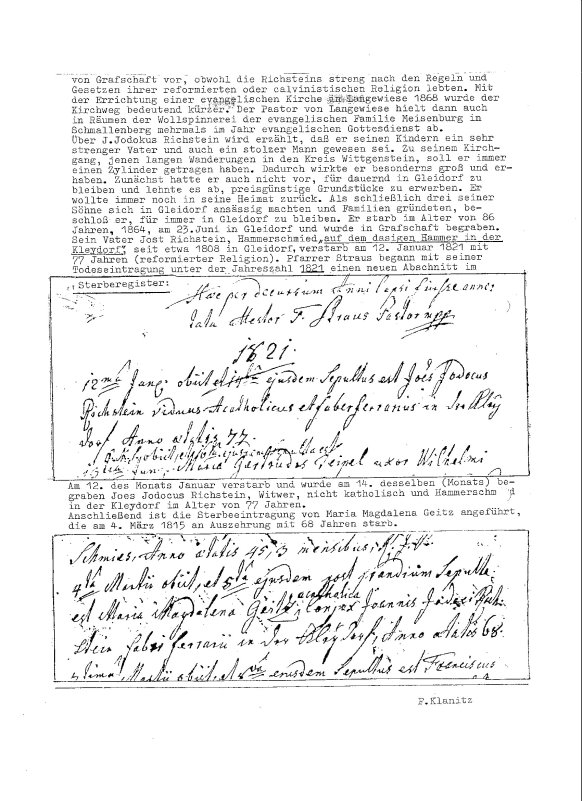 von Grafschaft vor, obwohl die Richsteins streng nach den Regeln und
Gesetzen ihrer reformierten oder calvinistischen Religion lebten. Mit
der Errichtung einer evangelischen Kirche in Langewiese 1868 wurde der
Kirchweg bedeutend kürzer. Der Pastor von Langewiese hielt dann auch
in Räumen der Wollspinnerei der evangelischen Familie Meisenburg in
Schmallenberg mehrmals im Jahr evangelischen Gottesdienst ab.
Über J.Jodokus Richstein wird erzählt, daß er seinen Kindern ein sehr
strenger Vater und auch ein stolzer Mann gewesen sei. Zu seinem Kirch-
gang, jenen langen Wanderungen in den Kreis Wittgenstein, soll er immer
einen Zylinder getragen haben. Dadurch wirkte er besonders groß und er-
haben. Zunächst hatte er auch nicht vor, für dauernd in Gleidorf zu
bleiben und lehnte es ab, preisgünstige Grundstücke zu erwerben. Er
wollte immer noch in seine Heimat zurück. Als schließlich drei seiner
Söhne sich in Gleidorf ansässig machten und Familien gründeten, be-
schloß er, für immer in Gleidorf zu bleiben. Er starb im Alter von 86
Jahren, 1864, am 23.Juni in Gleidorf und wurde in Grafschaft begraben.
Sein Vater Jost Richstein, Hammerschmied „auf dem dasigen Hammer in der
Kleydorf“, seit etwa 1808 in Gleidorf, verstarb am 12. Januar 1821 mit
77 Jahren (reformierter Religion). Pfarrer Straus begann mit seiner
Todeseintragung unter der Jahreszahl 1821 einen neuen Abschnitt im
Sterberegister:
Hac per decursum Anni
Straus Pastor mpp
1821.
12ma Jan: obiit et 14ta ejusdem Sepultus est Joes Jodocus
Richstein viduus Acatholicus et faber ferrarius in der Kley
dorf Anno ætatis 77.
Maria Gertrudis Geipel uxor Wilhelmi
Am 12. des Monats Januar verstarb und wurde am 14. desselben (Monats) be-
graben Joes Jodocus Richstein, Witwer, nicht katholisch und Hammerschm d
in der Kleydorf im Alter von 77 Jahren.
Anschließend ist die Sterbeeintragung von Maria Magdalena Geitz angeführt,
die am 4. März 1815 an Auszehrung mit 68 Jahren starb.
Schmies, Anno ætatis 45, 3 mensibus,
4ta Martii obiit, et 5ta ejusdem post prandium Sepulta
est Maria Magdalena Geitz acatholica Conjux Joannis Jodoci Rich-
stein fabri ferrarii in der Kley Dorf, Anno ætatis 68.
Martii obiit, et 8va ejusdem Sepultus est Franciscus
F.Klanitz